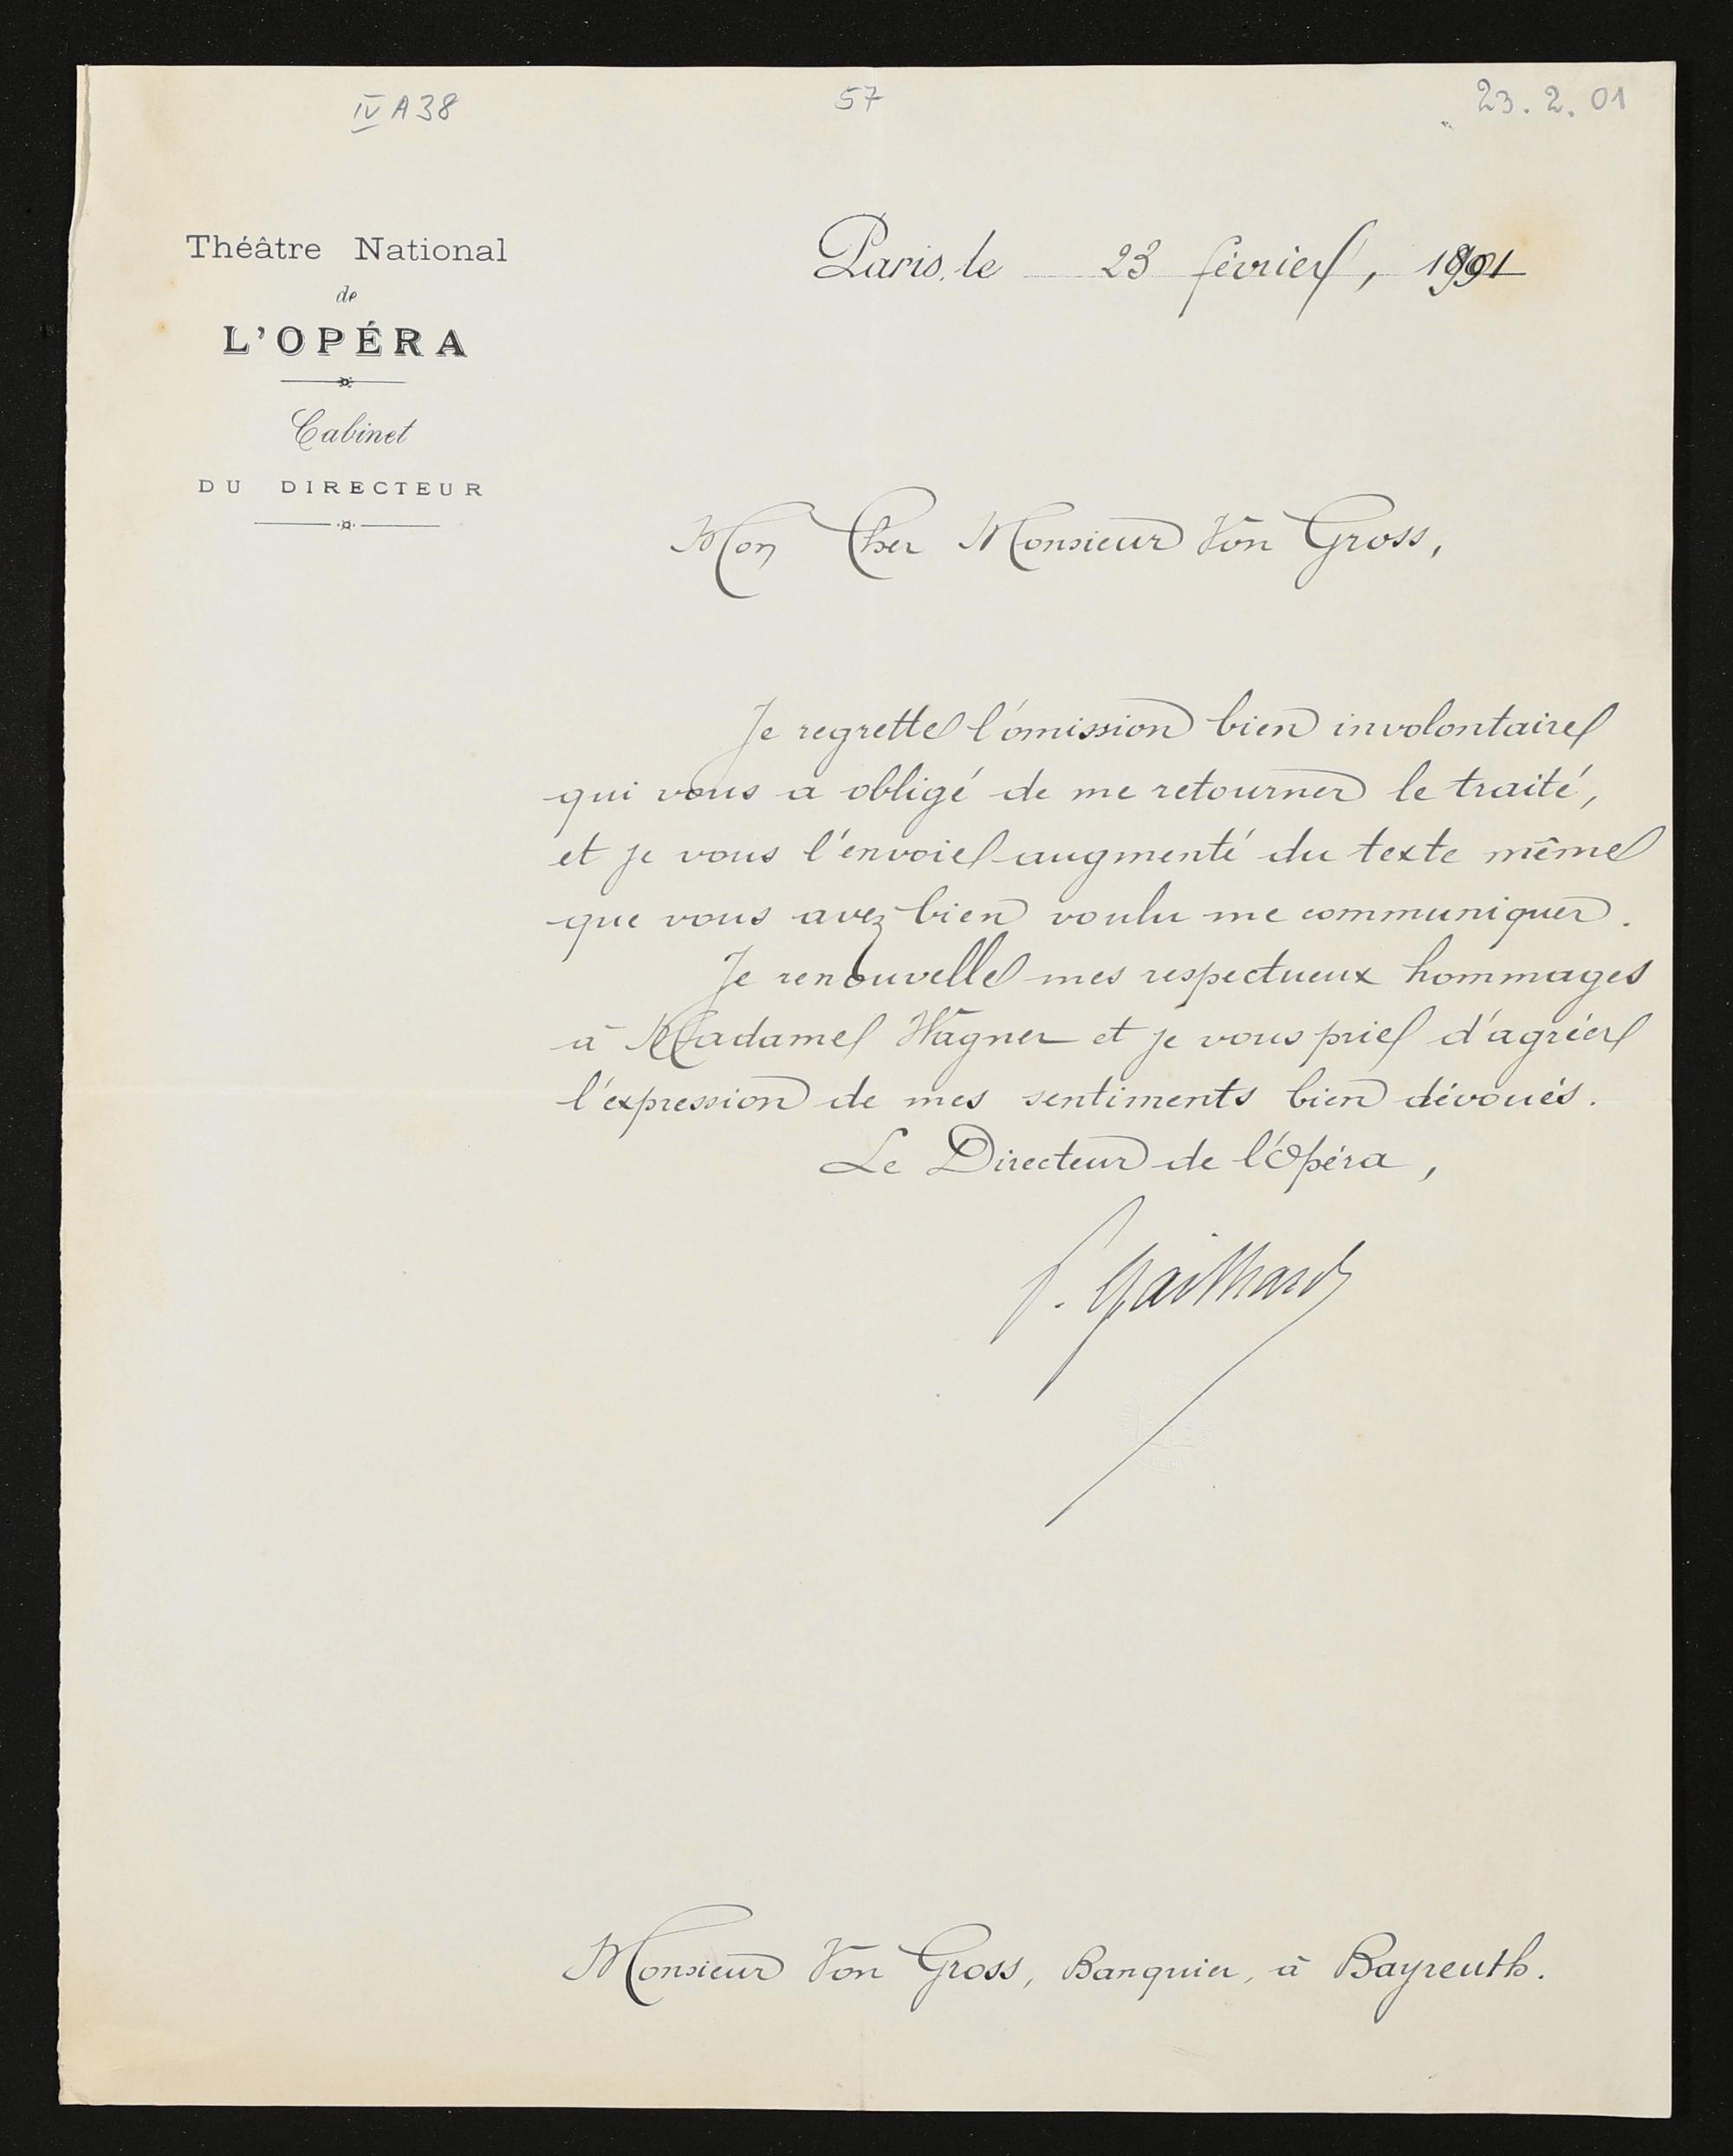 IV A 38
57
23. 2. 01
Théâtre National
de
L'OPÉRA
Cabinet
DU DIRECTEUR
Paris, le 23 février, 1901
Mon Cher Monsieur Von Gross,
Je regrette l'omission bien involontaire
qui vous a obligé de me retourner le traité,
et je vous l'envoie augmenté du texte même
que vous avez bien voulu me communiquer.
Je renouvelle mes respectueux hommages
à Madame Wagner et je vous prie d'agréer
l'expression de mes sentiments bien dévoués.
Le Directeur de l'Opéra,
P. Gailhard
Monsieur Von Gross, Banquier, à Bayreuth.